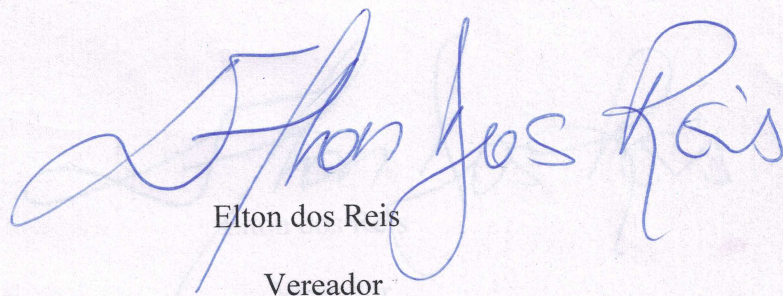 Elton dos Reis
Elton dos Reis
Vereador